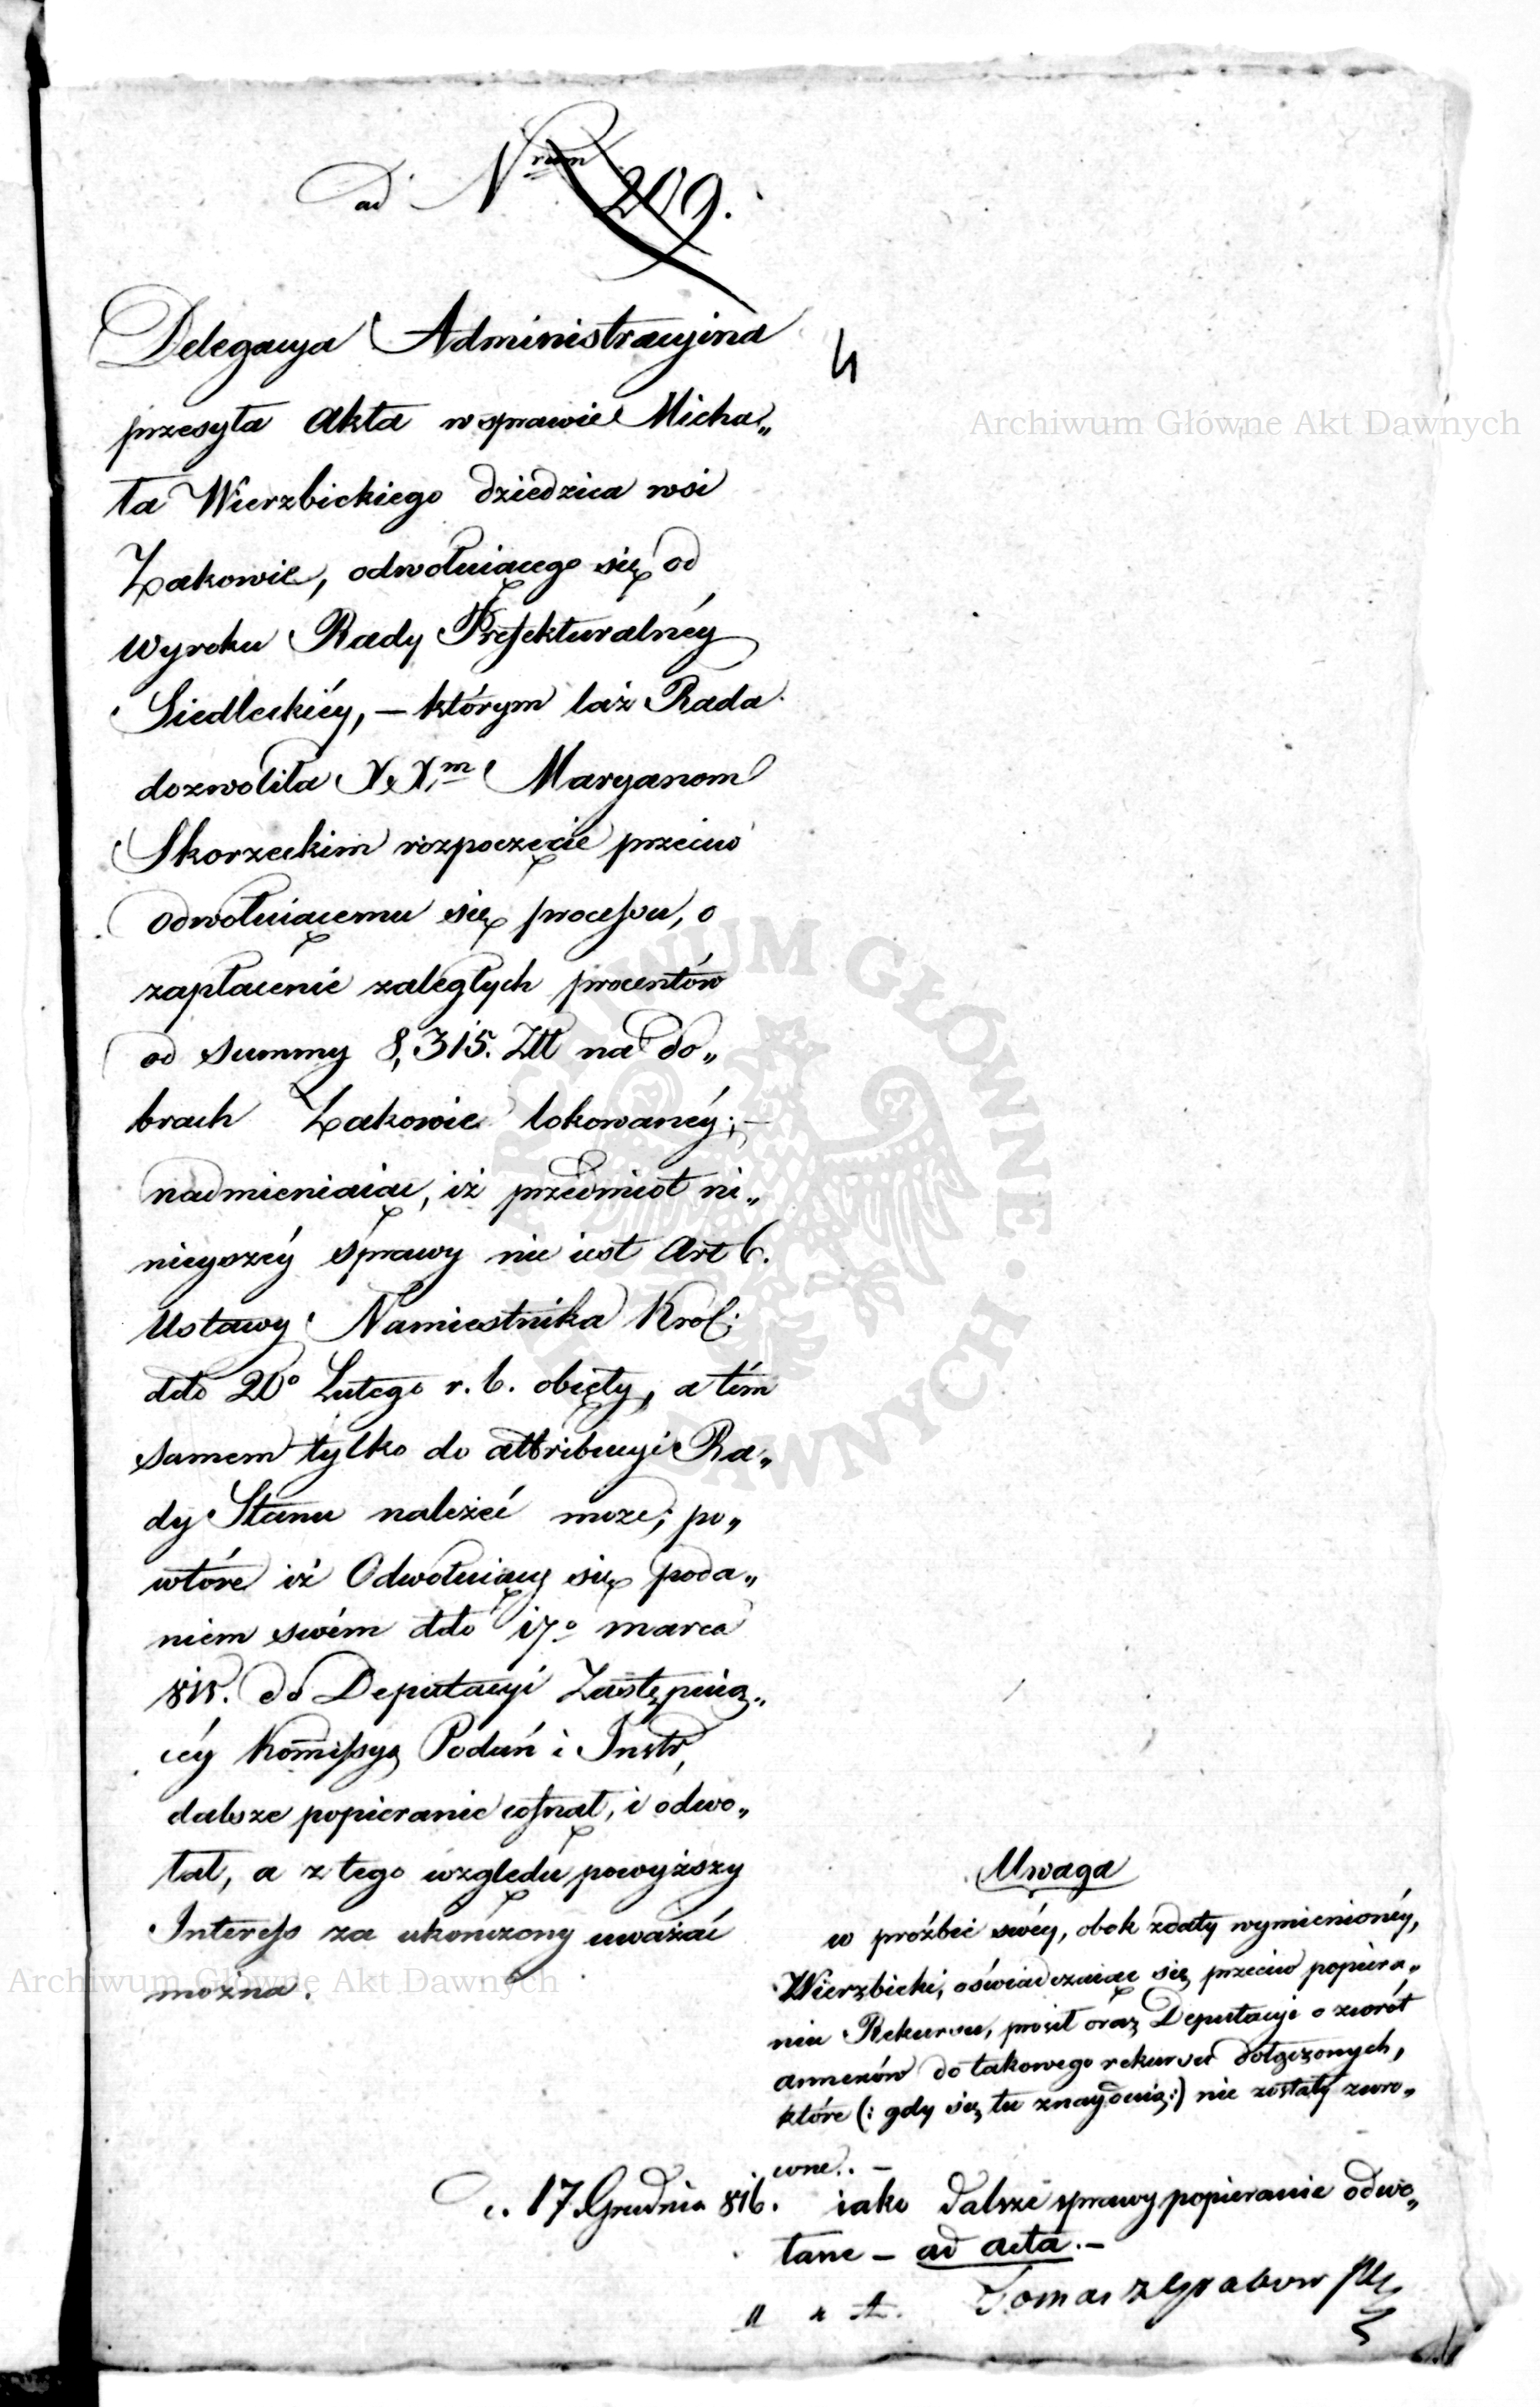 ad Nrum 209.
4
Delegacya Administracyina
przesyła Akta w sprawie Micha„
ła Wierzbickiego dziedzica wsi
Żakowie, odwołuiącego się od
Wyroku Rady Prefekturalnéy
Siedleckiéy, – którym taż Rada
dozwoliła XX.m Maryanom
Skorzeckim rozpoczęcie przeciw
Odwołuiącemu się processu, o
zapłacenie zaległych procentów
od summy 8,315. Złł na do„
brach Żakowie lokowanéy; –
nadmieniaiąc, iż przedmiot ni„
nieyszéy sprawy nie iest Art 6.
Ustawy Namiestnika Król:
ddto 20o Lutego r. b. obięty, a tém
samem tylko do attribucyi Ra„
dy Stanu należeć może; po„
wtóre iż Odwołuiący się poda„
niem swém ddto 17o marca
815. do Deputacyi Zastępuią„
céy Kommissyą Podań i Instr,
dalsze popieranie cofnął, i odwo„
łał, a z tego względu powyższy
Interess za ukończony uważać
można.
Uwaga
w prośbie swéy, obok z daty wymienionéy,
Wierzbicki, oświadczaiąc się przeciw popiera„
niu Rekursu, prosił oraz Deputacyi o zwrót
annexów do takowego rekursu dołączonych,
które (: gdy się tu znayduią :) nie zostały zwró„
cone. –
d. 17 Grudnia 816. iako dalsze sprawy popieranie odwo„
łane – ad acta. –
Tomasz Grabow
Archiwum Główne Akt Dawnych
Archiwum Główne Akt Dawnych
ARCHIWUM GŁÓWNE AKT DAWNYCH